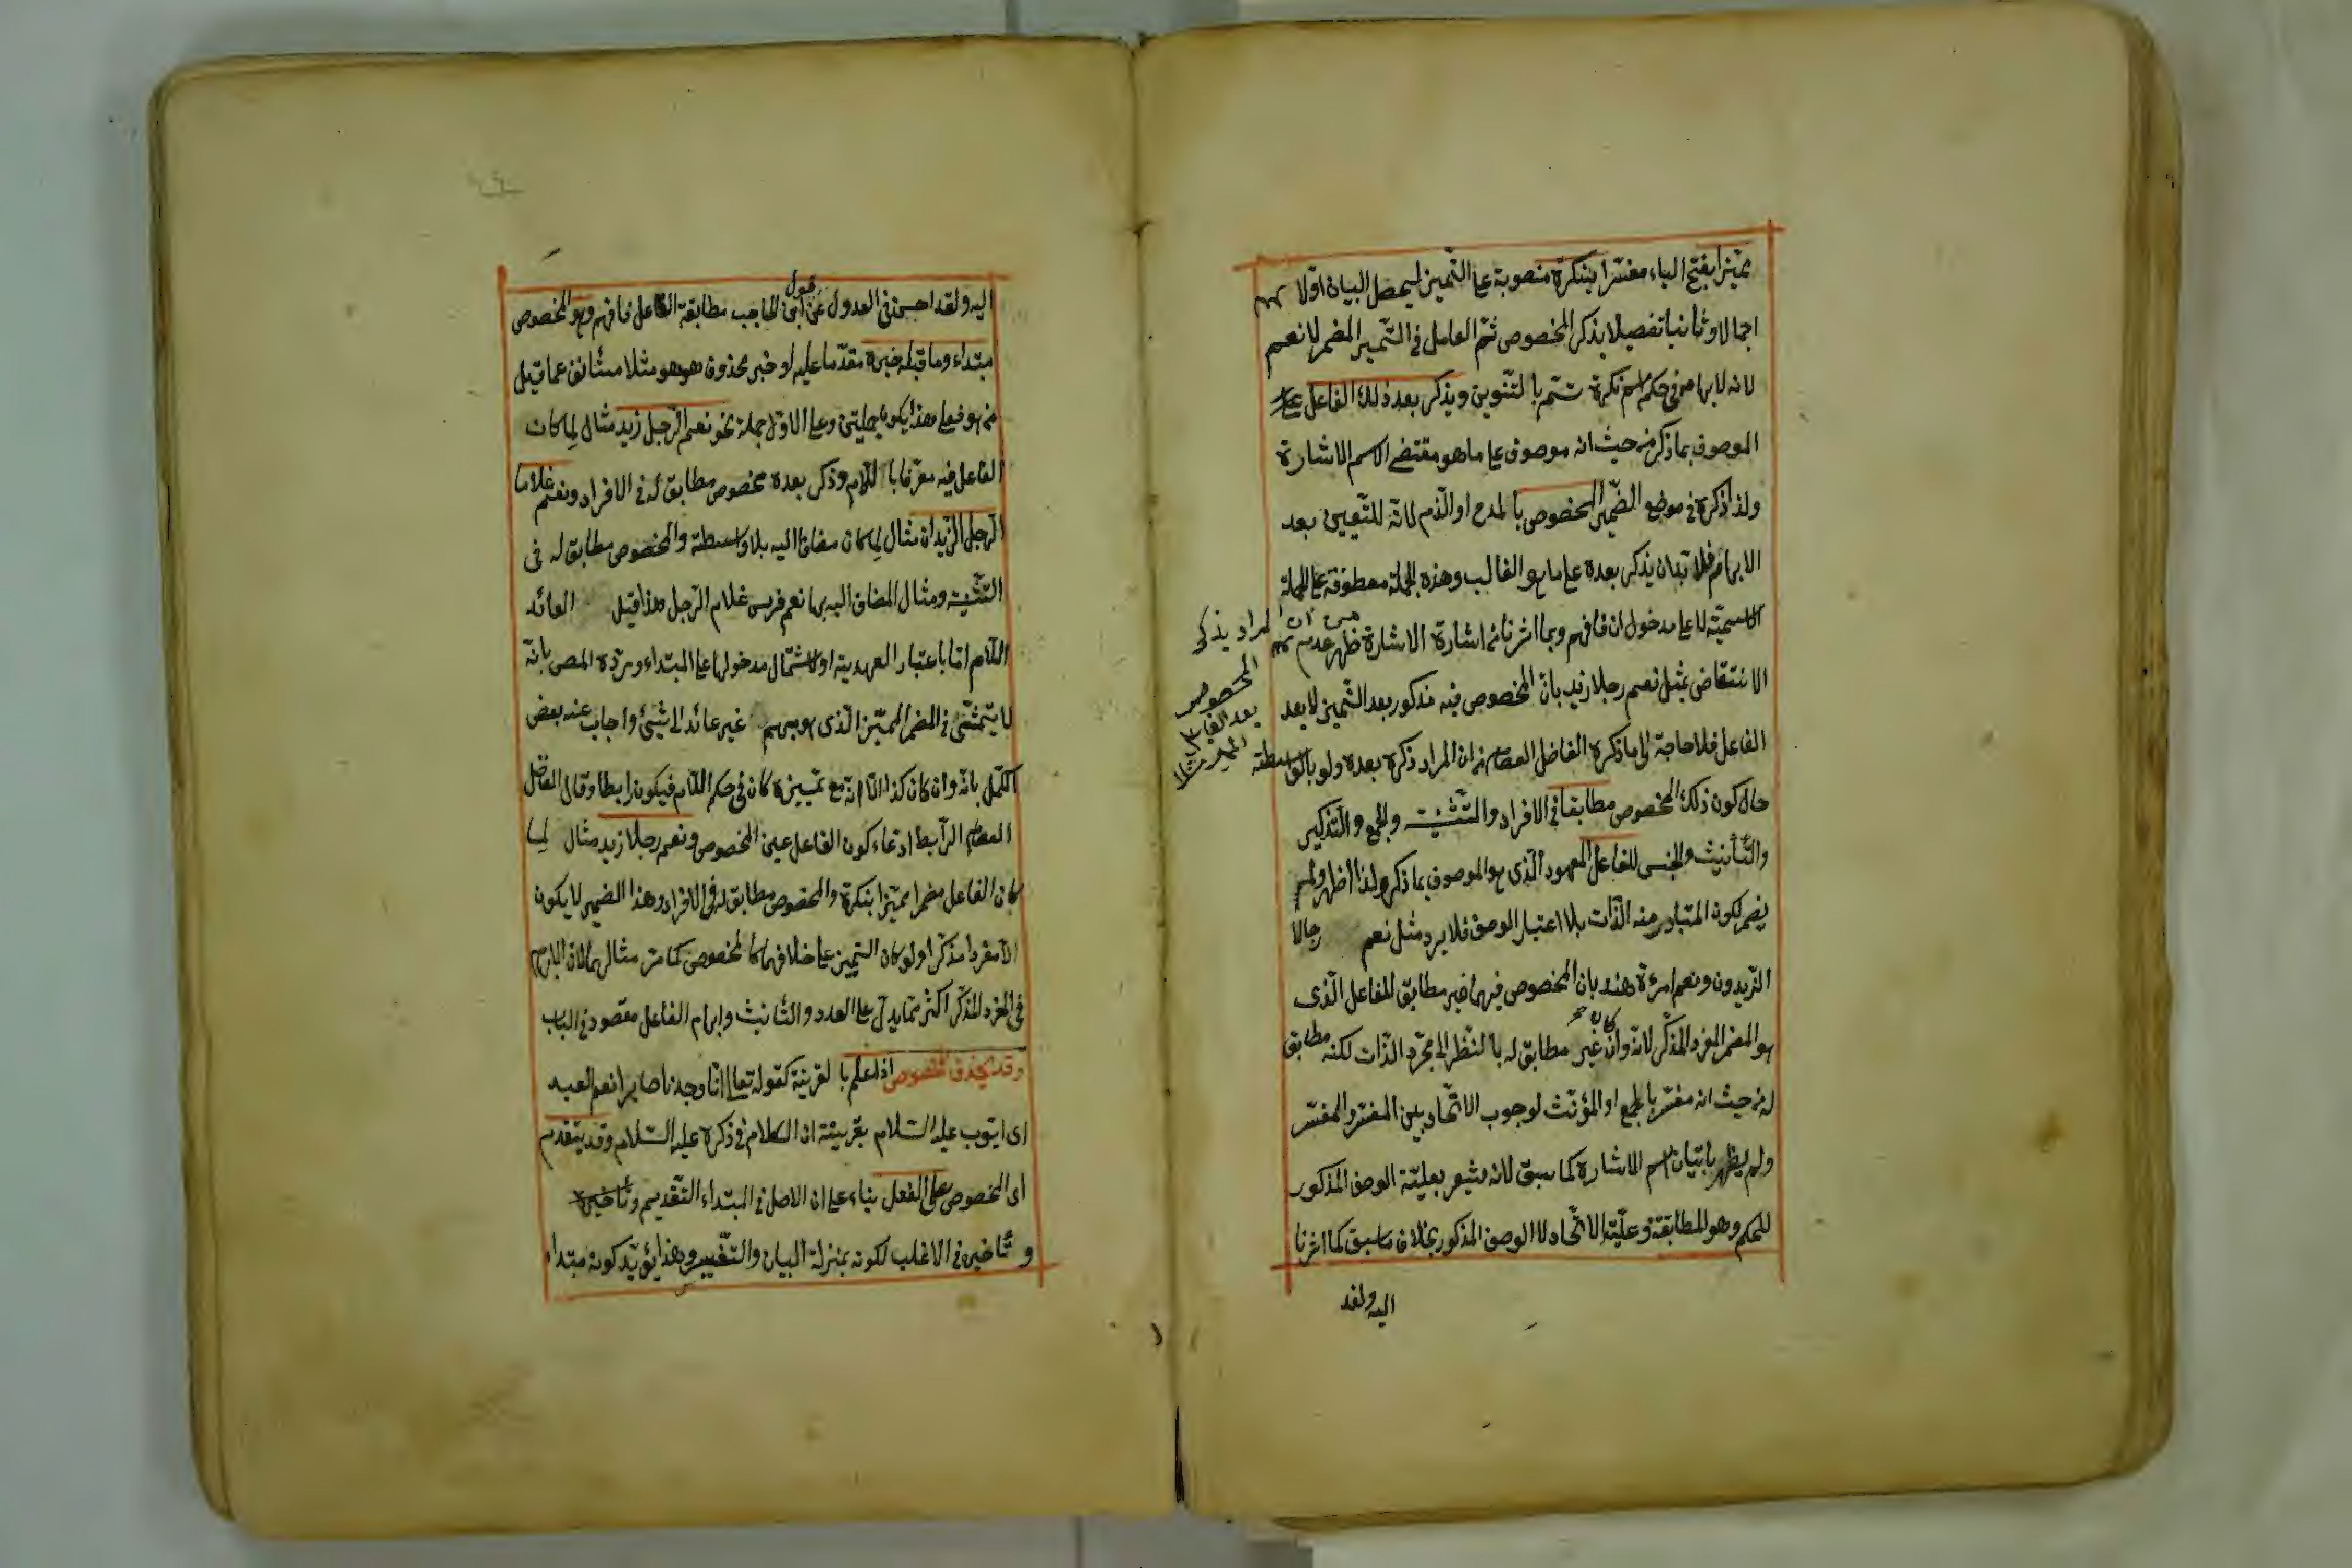 مميزا بفتح الياء مفسرا بنكرة منصوبة على التمييز ليحصل البيان اولا
اجمالا وثانيا تفصيلا بذكر المخصوص ثم العامل في التمييز المضمر لا نعم
لانه لابهامه في حكم اسم نكرة تتم بالتنوين ويذكر بعد ذلك الفاعل
الموصوف بما ذكر من حيث انه موصوف على ما هو مقتضى الاسم الاشارة
ولذا ذكره في موضع الضمير المخصوص بالمدح او الذم لانه للتعيين بعد
الابهام فلا بد ان يذكر بعده على ما هو الغالب وهذه الجملة معطوفة على الجملة
الاسمية لا على مدخول ان فافهم وبما اشرنا اشارة الاشارة ظهر عدم
الانتقاض بمثل نعم رجلا زيد بان المخصوص فيه مذكور بعد التمييز لا بعد
الفاعل فلا حاجة الى ما ذكره الفاضل العصام من ان المراد ذكره بعده ولو بالواسطة
المراد يذكر
المخصوص
بعد الفاعل
حال كون ذلك المخصوص مطابقا في الافراد والتثنية والجمع والتذكير
والتأنيث والجنس للفاعل المعهود الذي هو الموصوف بما ذكر ولذا اظهر ولم
يضمر لكون المتبادر منه الذات بلا اعتبار الوصف فلا يرد مثل نعم رجالا
الزيدون ونعم امرءة هند بان المخصوص فيهما غير مطابق للفاعل الذي
هو المضمر المفرد المذكر لانه وان كان غير مطابق له بالنظر الى مجرد الذات لكنه مطابق
له من حيث انه مفسر بالجمع او المؤنث لوجوب الاتحاد بين المفسر والمفسر
ولم يظهر باتيان اسم الاشارة كما سبق لانه مشعر بعلية الوصف المذكور
للحكم وهو المطابقة وعلية الاتحاد لا الوصف المذكور بخلاف ما سبق كما اشرنا
اليه ولقد
اليه ولقد احسن في العدول عن قول ابن الحاجب مطابقة الفاعل فافهم وهو المخصوص
مبتداء وما قبله خبره مقدما عليه او خبر محذوف هو هو مثلا مستأنف عما قيل
من هو فعلى هذا يكون جملتين وعلى الاول جملة نحو نعم الرجل زيد مثال لما كان
الفاعل فيه معرفا باللام وذكر بعده مخصوص مطابق له في الافراد ونعم غلاما
الرجل الزيدان مثال لما كان مضافا اليه بلا واسطة والمخصوص مطابق له في
التثنية ومثال المضاف اليه بها نعم فرس غلام الرجل هذا قيل العائد
اللام اما باعتبار العهدية او لاشتمال مدخولها على المبتداء ورده المص بانه
لا يتمشى في المضمر المميز الذي هو مبهم غير عائد الى شيئ واجاب عنه بعض
الكمل بانه وان كان كذا الا انه مع تمييزه كان في حكم اللام فيكون رابطا وقال الفاضل
العصام الرابط ادعاء كون الفاعل عين المخصوص ونعم رجلا زيد مثال لما
كان الفاعل مضمرا مميزا بنكرة والمخصوص مطابق له في الافراد وهذا الضمير لا يكون
الا مفردا مذكرا ولو كان التمييز على خلافهما كالمخصوص كما مر مثالهما لان الابهام
في المفرد المذكر اكثر مما يدل على العدد والتأنيث وابهام الفاعل مقصود في الباب
وقد يحذف المخصوص اذا علم بالقرينة كقوله تعالى انا وجدناه صابرا نعم العبد
اى ايوب عليه السلام بقرينة ان الكلام في ذكره عليه السلام وقد يتقدم
اى المخصوص على الفعل بناء على ان الاصل في المبتداء التقديم وتأخيره
و تأخيره في الاغلب لكونه بمنزلة البيان والتفسير وهذا يؤيد كونه مبتداء